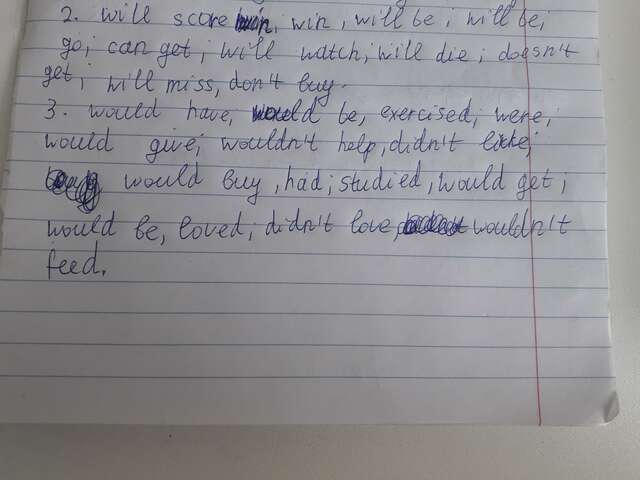 2. will score, win, will be; will be;
go; can get; will watch; will die; doesn't
get; will miss, don't buy.
3. would have, would be, exercised; were;
would give; wouldn't help, didn't like;
would buy, had; studied, would get;
would be, loved; didn't love, wouldn't
feed.